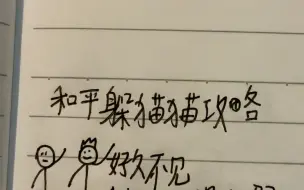 和平躲猫猫攻略
好久不见